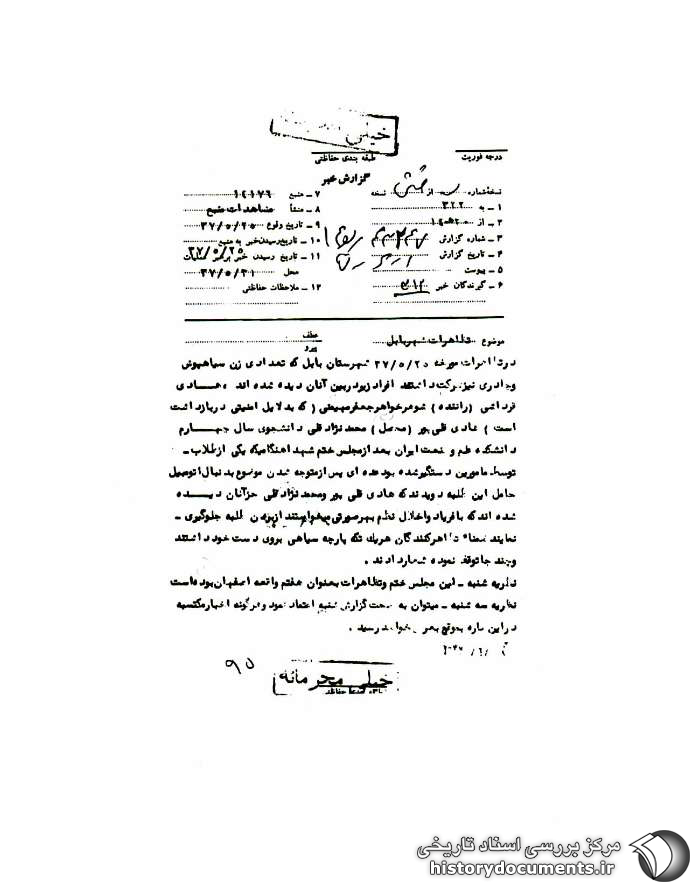 خیلی
درجه فوریت
طبقه بندی حفاظتی
گزارش خبر
نسخه شماره از شش نسخه
۱ – به ۳۲۲
۲ – از
۳ – شماره گزارش
۴ – تاریخ گزارش
۵ – پیوست
۶ – گیرندگان خبر ۳۱۲
۷ – منبع ۱۲۱۷۶
۸ – منشأ مشاهدات منبع
۹ – تاریخ وقوع ۳۷/۵/۲۵
۱۰ – تاریخ رسیدن خبر به منبع
۱۱ – تاریخ رسیدن خبر ۳۷/۵/۲۵
محل ۳۷/۵/۳۱
۱۲ – ملاحظات حفاظتی
موضوع تظاهرات شهر بابل
عطف
پیرو
در تظاهرات مورخه ۳۷/۵/۲۵ شهرستان بابل که تعدادی زن سیاهپوش
و چادری نیز شرکت داشتند افراد زیر در بین آنان دیده شده اند هادی
(راننده) شوهر خواهر جعفر (که بدلایل امنیتی در بازداشت
است) هادی قلی پور (محصل) محمد نژاد قلی دانشجوی سال چهارم
دانشکده علم و صنعت ایران بعد از مجلس ختم شهدا هنگامیکه یکی از طلاب –
توسط مامورین دستگیر شده بود عده ای پس از متوجه شدن موضوع بدنبال اتومبیل
حامل این طلبه دویدند که هادی قلی پور و محمد نژاد قلی جزآنان دیده
شده اند که با فریاد و اخلال نظم بهر صورتی میخواستند از بردن طلبه جلوگیری –
نمایند ضمناً تظاهرکنندگان هریک تکه پارچه سیاهی بروی دست خود داشتند
و چند جا توقف نموده شعار دادند .
نظریه شنبه – این مجلس ختم و تظاهرات بعنوان هفتم واقعه اصفهان بوده است
نظریه سه شنبه – میتوان به صحت گزارش شنبه اعتماد نمود و هرگونه اخبار مکتسبه
در این باره بموقع بعرض خواهد رسید .
۹۵
خیلی محرمانه
مرکز بررسی اسناد تاریخی
historydocuments.ir